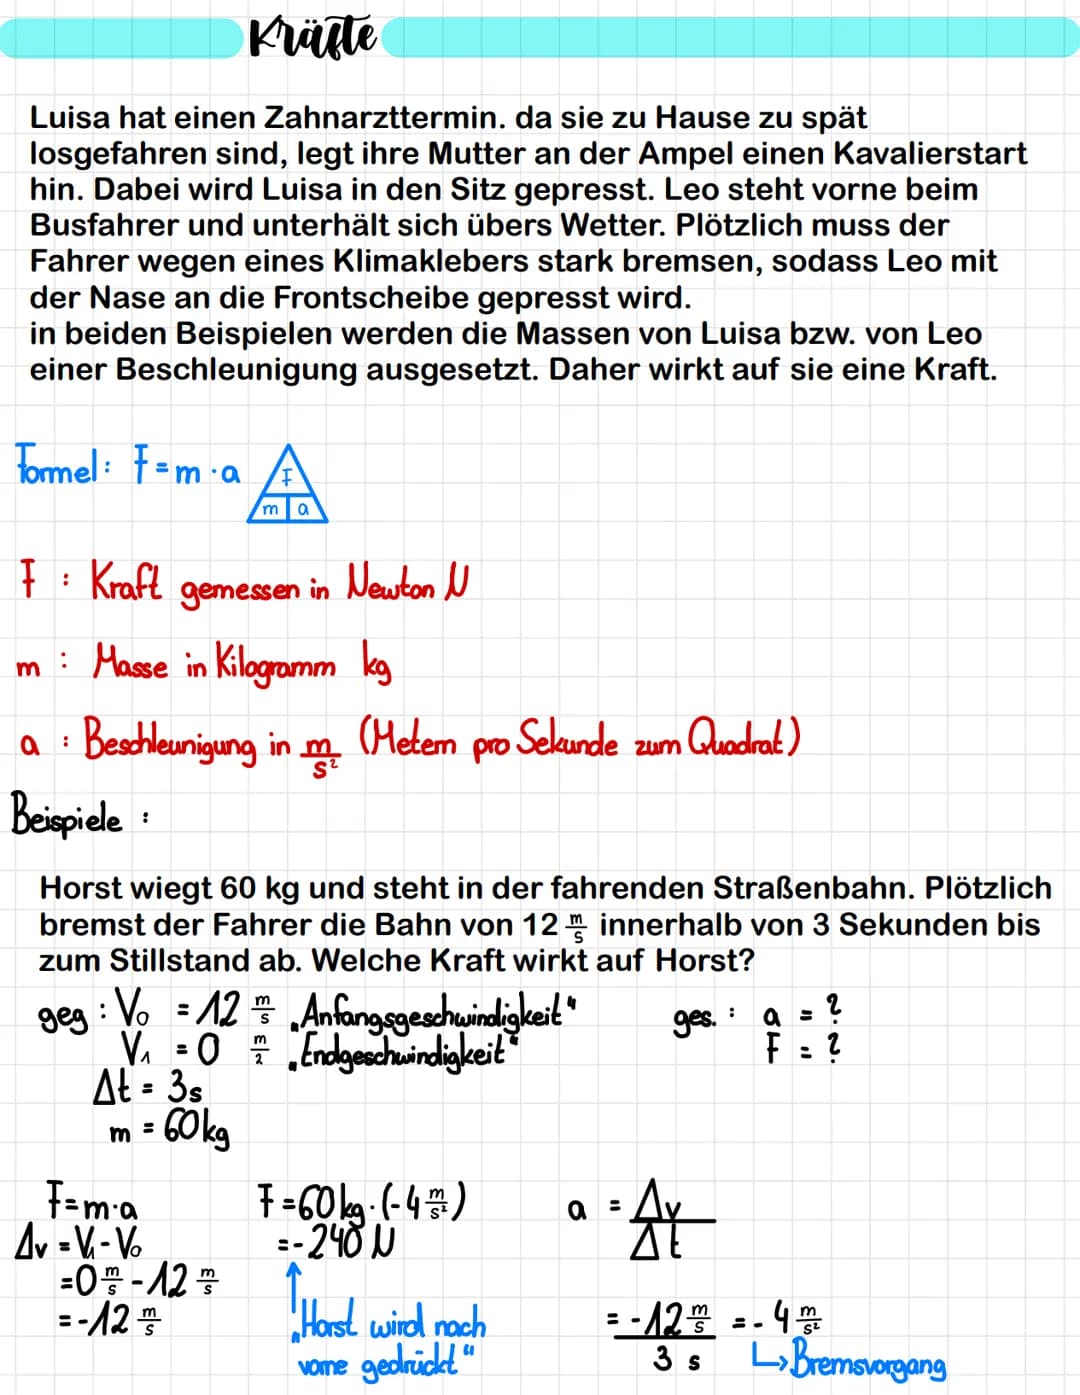 Kräfte
Luisa hat einen Zahnarzttermin. da sie zu Hause zu spät
losgefahren sind, legt ihre Mutter an der Ampel einen Kavalierstart
hin. Dabei wird Luisa in den Sitz gepresst. Leo steht vorne beim
Busfahrer und unterhält sich übers Wetter. Plötzlich muss der
Fahrer wegen eines Klimaklebers stark bremsen, sodass Leo mit
der Nase an die Frontscheibe gepresst wird.
in beiden Beispielen werden die Massen von Luisa bzw. von Leo
einer Beschleunigung ausgesetzt. Daher wirkt auf sie eine Kraft.
Formel: F = m · a
F
m a
F : Kraft gemessen in Newton N
m : Masse in Kilogramm kg
a : Beschleunigung in m/s² (Metern pro Sekunde zum Quadrat)
Beispiele :
Horst wiegt 60 kg und steht in der fahrenden Straßenbahn. Plötzlich
bremst der Fahrer die Bahn von 12 m/s innerhalb von 3 Sekunden bis
zum Stillstand ab. Welche Kraft wirkt auf Horst?
geg : V₀ = 12 m/s „Anfangsgeschwindigkeit"
V₁ = 0 m/2 „Endgeschwindigkeit"
Δt = 3s
m = 60kg
ges. : a = ?
F = ?
F = m · a
Δv = V₁ - V₀
= 0 m/s - 12 m/s
= -12 m/s
F = 60kg · (-4 m/s²)
= -240 N
„Horst wird nach
vorne gedrückt"
a = Δv/Δt
= -12 m/s / 3 s = -4 m/s²
↳ Bremsvorgang